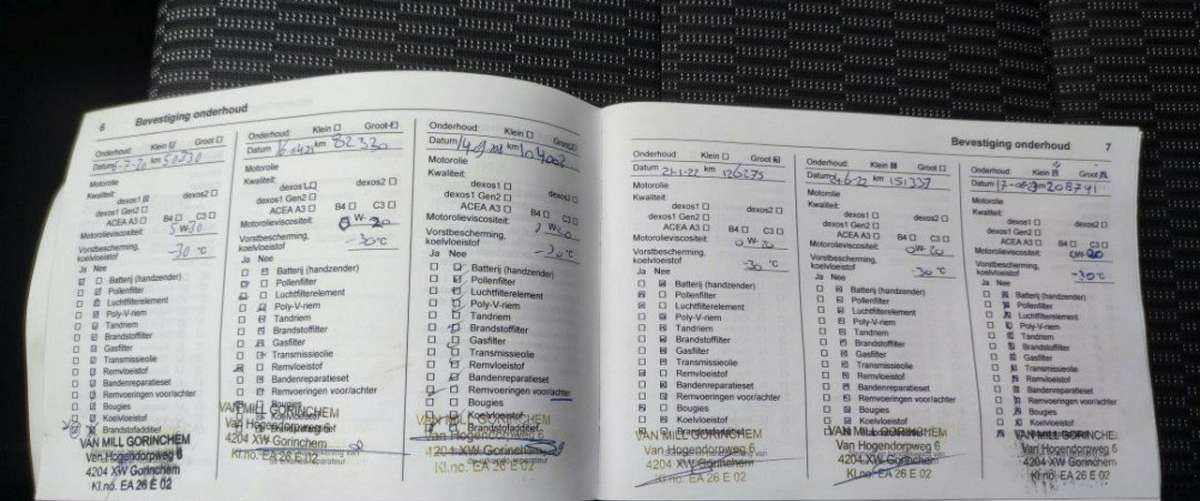 6 Bevestiging onderhoud
Onderhoud: Klein ☑ Groot ☐
Datum 6-7-20 km 50830
Motorolie
Kwaliteit:
dexos1 ☒ dexos2 ☐
dexos1 Gen2 ☐
ACEA A3 ☐ B4 ☐ C3 ☐
Motorolieviscositeit: 5 W-30
Vorstbescherming,
koelvloeistof -30 °C
Ja Nee
Batterij (handzender)
Pollenfilter
Luchtfilterelement
Poly-V-riem
Tandriem
Brandstoffilter
Gasfilter
Transmissieolie
Remvloeistof
Bandenreparatieset
Remvoeringen voor/achter
Bougies
Koelvloeistof
Brandstofadditief
VAN MILL GORINCHEM
Van Hogendorpweg 6
4204 XW Gorinchem
Kl.no. EA 26 E 02
Onderhoud: Klein ☐ Groot
Datum km 82330
Motorolie
Kwaliteit:
dexos1 dexos2 ☐
dexos1 Gen2 ☐
ACEA A3 ☐ B4 ☐ C3 ☐
Motorolieviscositeit: 0 W- 20
Vorstbescherming,
koelvloeistof -30°C
Ja Nee
Batterij (handzender)
Pollenfilter
Luchtfilterelement
Poly-V-riem
Tandriem
Brandstoffilter
Gasfilter
Transmissieolie
Remvloeistof
Bandenreparatieset
Remvoeringen voor/achter
Bougies
Koelvloeistof
Brandstofadditief
VAN MILL GORINCHEM
Van Hogendorpweg 6
4204 XW Gorinchem
Kl.no. EA 26 E 02
Onderhoud: Klein ☐ Groot
Datum km 104002
Motorolie
Kwaliteit:
dexos1 ☐ dexos2 ☐
dexos1 Gen2 ☐
ACEA A3 ☐ B4 ☐ C3 ☐
Motorolieviscositeit: W-20
Vorstbescherming,
koelvloeistof -30°C
Ja Nee
Batterij (handzender)
Pollenfilter
Luchtfilterelement
Poly-V-riem
Tandriem
Brandstoffilter
Gasfilter
Transmissieolie
Remvloeistof
Bandenreparatieset
Remvoeringen voor/achter
Bougies
Koelvloeistof
Brandstofadditief
VAN MILL GORINCHEM
Van Hogendorpweg 6
4204 XW Gorinchem
Kl.no. EA 26 E 02
Bevestiging onderhoud 7
Onderhoud: Klein ☐ Groot ☒
Datum 21-1-22 km 126275
Motorolie
Kwaliteit:
dexos1 ☐ dexos2 ☐
dexos1 Gen2 ☐
ACEA A3 ☐ B4 ☐ C3 ☐
Motorolieviscositeit: 0 W- 20
Vorstbescherming,
koelvloeistof -30 °C
Ja Nee
Batterij (handzender)
Pollenfilter
Luchtfilterelement
Poly-V-riem
Tandriem
Brandstoffilter
Gasfilter
Transmissieolie
Remvloeistof
Bandenreparatieset
Remvoeringen voor/achter
Bougies
Koelvloeistof
Brandstofadditief
VAN MILL GORINCHEM
Van Hogendorpweg 6
4204 XW Gorinchem
Kl.no. EA 26 E 02
Onderhoud: Klein ☒ Groot ☐
Datum km 151337
Motorolie
Kwaliteit:
dexos1 ☐ dexos2 ☐
dexos1 Gen2 ☐
ACEA A3 ☐ B4 ☐ C3 ☐
Motorolieviscositeit: 0 W- 20
Vorstbescherming,
koelvloeistof -30 °C
Ja Nee
Batterij (handzender)
Pollenfilter
Luchtfilterelement
Poly-V-riem
Tandriem
Brandstoffilter
Gasfilter
Transmissieolie
Remvloeistof
Bandenreparatieset
Remvoeringen voor/achter
Bougies
Koelvloeistof
Brandstofadditief
VAN MILL GORINCHEM
Van Hogendorpweg 6
4204 XW Gorinchem
Kl.no. EA 26 E 02
Onderhoud: Klein Groot
Datum km 208741
Motorolie
Kwaliteit:
dexos1 ☐ dexos2 ☐
dexos1 Gen2 ☐
ACEA A3 ☐ B4 ☐ C3 ☐
Motorolieviscositeit: 0W- 20
Vorstbescherming,
koelvloeistof -30°C
Ja Nee
Batterij (handzender)
Pollenfilter
Luchtfilterelement
Poly-V-riem
Tandriem
Brandstoffilter
Gasfilter
Transmissieolie
Remvloeistof
Bandenreparatieset
Remvoeringen voor/achter
Bougies
Koelvloeistof
Brandstofadditief
VAN MILL GORINCHEM
Van Hogendorpweg 6
4204 XW Gorinchem
Kl.no. EA 26 E 02